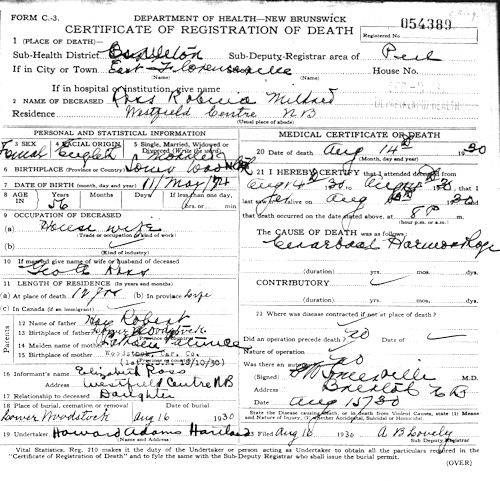 FORM C.-3.
DEPARTMENT OF HEALTH—NEW BRUNSWICK
CERTIFICATE OF REGISTRATION OF DEATH
Registered No. 054389
1 (PLACE OF DEATH)—
Sub-Health District Sub-Deputy-Registrar area of Peel
(Name)
If in City or Town East Florenceville House No.
(Name)
If in hospital or institution, give name
2 NAME OF DECEASED Ross Robina Mildred
Residence Westfield Centre N B
(Usual place of abode)
PERSONAL AND STATISTICAL INFORMATION
3 SEX 4 RACIAL ORIGIN 5 Single, Married, Widowed or Divorced (Write the word)
Femal English
6 BIRTHPLACE (Province or Country)
7 DATE OF BIRTH (month, day and year) 11/May/74
8 AGE IN YEARS Months Days If less than one day, hrs. or min.
56
9 OCCUPATION OF DECEASED
(a) House wife
(Trade or occupation or kind of work)
(b)
(Kind of industry)
10 If married give name of wife or husband of deceased
Geo Ross
11 LENGTH OF RESIDENCE (In years and months)
(a) At place of death (b) In province Life
(c) In Canada (if an immigrant)
Parents
12 Name of father Robert
13 Birthplace of father Woodstock
14 Maiden name of mother
15 Birthplace of mother Woodstock, Car. Co.
16 Informant's name Elizabeth Ross
Address Westfield Centre NB
17 Relationship to deceased Daughter
18 Place of burial, cremation or removal Date of burial
Lower Woodstock Aug 16 1930
19 Undertaker Howard Adams Hartland
(Name and Address)
MEDICAL CERTIFICATE OF DEATH
20 Date of Death Aug 14th 1930
(Month, day and year)
21 I HEREBY CERTIFY that I attended deceased from
Aug 30, to Aug 30, that I
last saw alive on Aug 30
that death occurred on the date stated above, at 8 P
(hour p.m. or a.m.)
The CAUSE OF DEATH was as follows:
(duration) yrs. mos. ds.
CONTRIBUTORY
(duration) yrs. mos. ds.
22 Where was disease contracted if not at place of death?
Did an operation precede death? no
Nature of operation
Was there an autopsy? no
(Signed) M.D.
Address
Date Aug 15/30
State the Disease causing Death, or in death from Violent Causes, state (1) Means and Nature of Injury, (2) whether Accidental, Suicidal or Homicidal.
Filed Aug 16 1930 A B Lovely
Sub Deputy Registrar
Vital Statistics, Reg. 110 makes it the duty of the Undertaker or person acting as Undertaker to obtain all the particulars required in the "Certificate of Registration of Death" and to fyle the same with the Sub-Deputy Registrar who shall issue the burial permit.
(OVER)